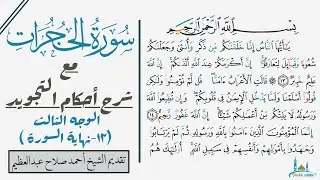 بِسْمِ اللَّهِ الرَّحْمَٰنِ الرَّحِيمِ
يَٰٓأَيُّهَا ٱلنَّاسُ إِنَّا خَلَقْنَٰكُم مِّن ذَكَرٍ وَأُنثَىٰ وَجَعَلْنَٰكُمْ
شُعُوبًا وَقَبَآئِلَ لِتَعَارَفُوٓا۟ إِنَّ أَكْرَمَكُمْ عِندَ ٱللَّهِ أَتْقَىٰكُمْ إِنَّ ٱللَّهَ
عَلِيمٌ خَبِيرٌ ١٣ قَالَتِ ٱلْأَعْرَابُ ءَامَنَّا قُل لَّمْ تُؤْمِنُوا۟ وَلَٰكِن
قُولُوٓا۟ أَسْلَمْنَا وَلَمَّا يَدْخُلِ ٱلْإِيمَٰنُ فِى قُلُوبِكُمْ وَإِن تُطِيعُوا۟
ٱللَّهَ وَرَسُولَهُۥ لَا يَلِتْكُم مِّنْ أَعْمَٰلِكُمْ شَيْـًٔا إِنَّ ٱللَّهَ غَفُورٌ رَّحِيمٌ ١٤
إِنَّمَا ٱلْمُؤْمِنُونَ ٱلَّذِينَ ءَامَنُوا۟ بِٱللَّهِ وَرَسُولِهِۦ ثُمَّ لَمْ يَرْتَابُوا۟
وَجَٰهَدُوا۟ بِأَمْوَٰلِهِمْ وَأَنفُسِهِمْ فِى سَبِيلِ ٱللَّهِ أُو۟لَٰٓئِكَ هُمُ
سورة الحجرات
مع
شرح أحكام التجويد
الوجه الثالث
(١٣-نهاية السورة)
تقديم الشيخ أحمد صلاح عبدالعظيم